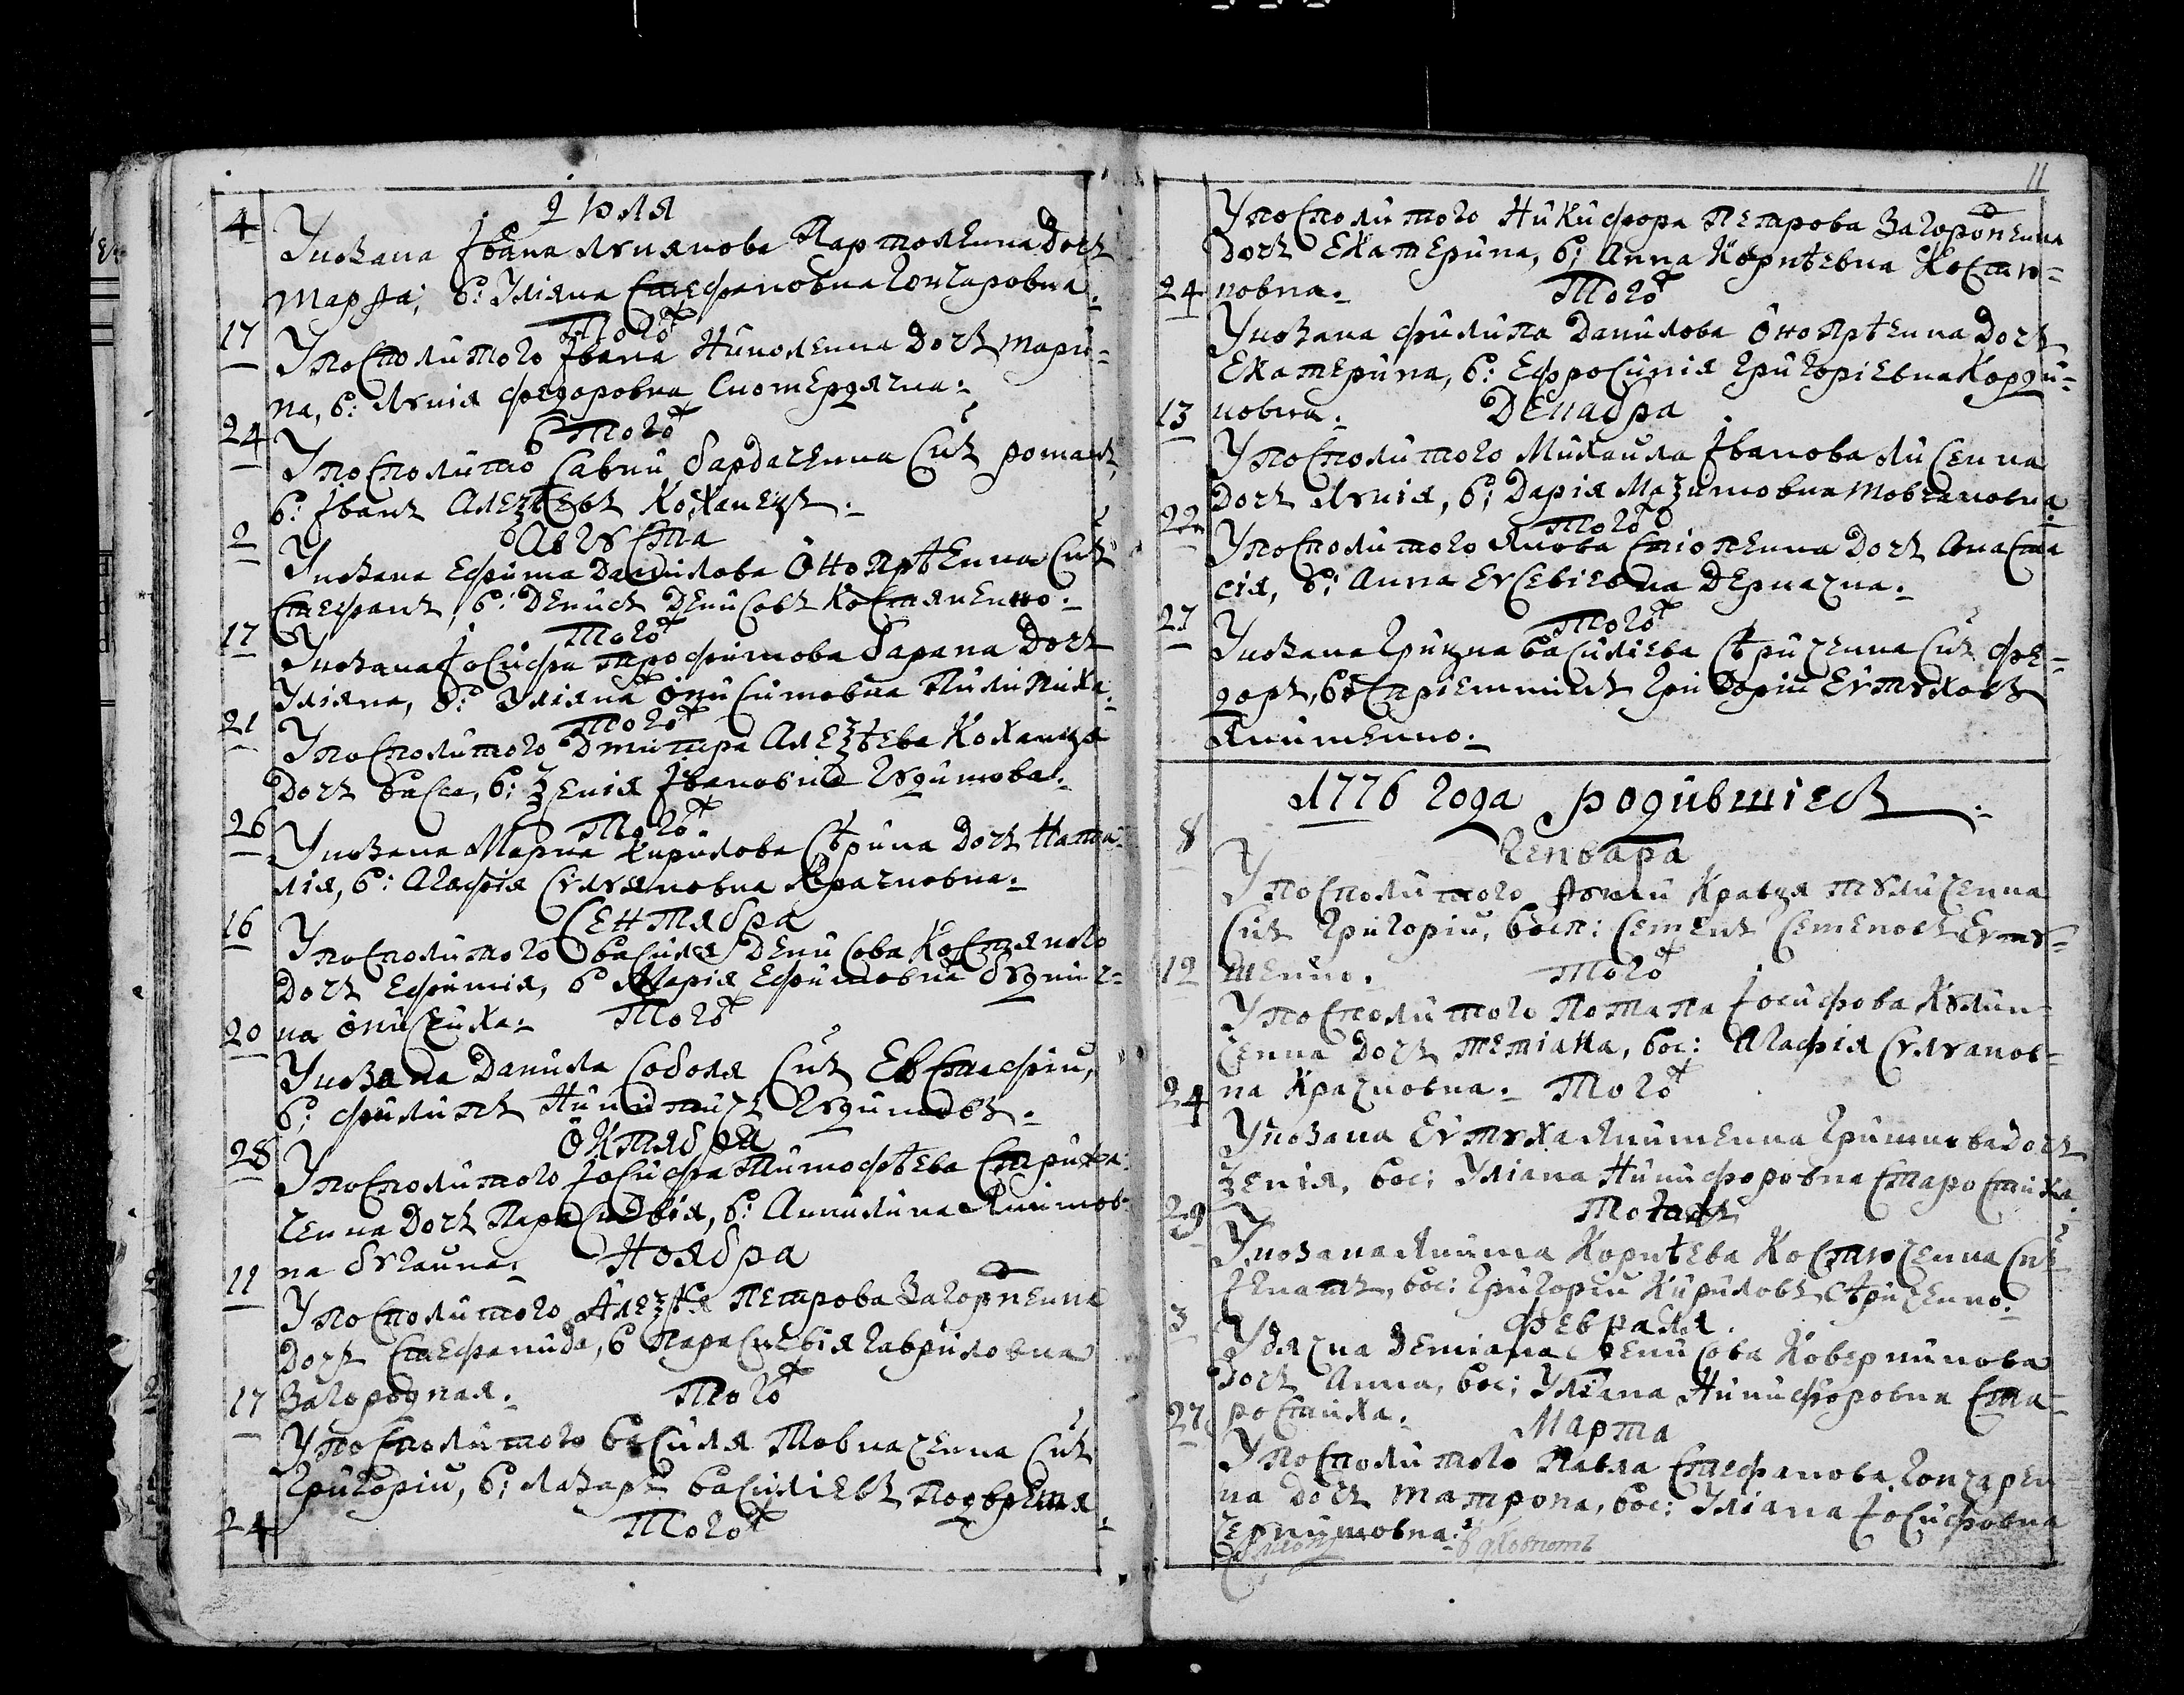 Июля
4
У козака Iвана Лукянова Пархоменка дочь
Марѳа; в: Улiяна Стефановна Гончаровна.
Того ж
17
У посполитого Iвана Николенка дочь Мари-
на, в: Лукiя Федоровна
24
Того ж
У посполито Савки Бардаченка сиъ Романъ,
в: Iванъ Алеѯѣевъ Коханецъ.
2
Августа
У козака Ефима Данилова Онопрѣенка сиъ
Стефанъ, в: Денисъ Денисовъ Костяненко.
17
Того ж
У козака Iосифа Трофимова Барана дочь
Улiяна, в: Улiяна Онисимовна Пилипиха.
21
Того ж
У посполитого Дмитра Алеѯѣева Коханця
дочь Васса, в: Ѯенiя Iвановна Кудимова.
26
Того ж
У козака Марка Кирилова Сѣрика дочь Ната-
лiя, в: Агафiя Сулуяновна Крачковна.
16
Сентября
У посполитого Василя Денисова Костянко
дочь Ефимiя, в Марiя Ефимовна
на Онисčиха. Того ж
20
У козака Данила Соболя сиъ Евстафiй,
в: Филипъ Никитичъ Кудимовъ.
28
Октября
У посполитого Iосифа Тимофѣева Стриха-
ченка дочь Параскевiя, в: Акилина Якимов-
на Букаична. Ноября
11
У посполитого Алеѯѣя Петрова Загороденка
дочь Стефанида, в Параскевiя Гавриловна
17
Загородная. Того ж
У посполитого Василя Товкаченка сиъ
Григорiй, в: Лазарь Василiевъ Подвремя.
24
Того ж
11
У посполитого Никифора Петрова Загороденка
дочь Екатерина, в: Анна Корнѣевна Костю-
24
ковна. Того ж
У козака Филипа Данилова Онопрѣенка дочь
Екатерина, в: Ефросинiя Григорiевна
13
Декабра
У посполитого Михаила Iванова Лисенка
дочь Лукiя, в: Дарiя Маѯимовна Товчановна
22
Того ж
У посполитого Якова Стюпенка дочь Анаста
сiя, в: Анна Евсевiевна Деркачка.
27
Того ж
У козака Грицка Василiева Сѣриченка сиъ Фео-
доръ, воспрiемникъ Григорiй Евтуховъ
Якименко.
1776 года родившiесь
8
Генвара
У посполитого Iовхи Кравця Тубличенка
сиъ Григорiй, восп: Семенъ Семеновъ Евту-
12
шенко. Того ж
У посполитого Потапа Iосифова
ченка дочь Тетiана, вос: Агафiя Сулуанов-
24
на Крачковна. Того ж
У козака Евтуха Якименка Гришкова дочь
Ѯенiя, вос: Улiана Никифоровна Старостиха.
29
Того ж
У козака Якима Корнѣева Костюченка сиъ
Игнатъ, вос: Григорiй Кириловъ Сѣриченко.
3
Февраля
У дячка Демiана Денисова Ковернинова
дочь Анна, вос: Улiана Никифоровна Ста-
27
ростиха. Марта
У посполитого Павла Стефанова Гончарен
ка дочь Матрона, вос: Улiана Iосифовна